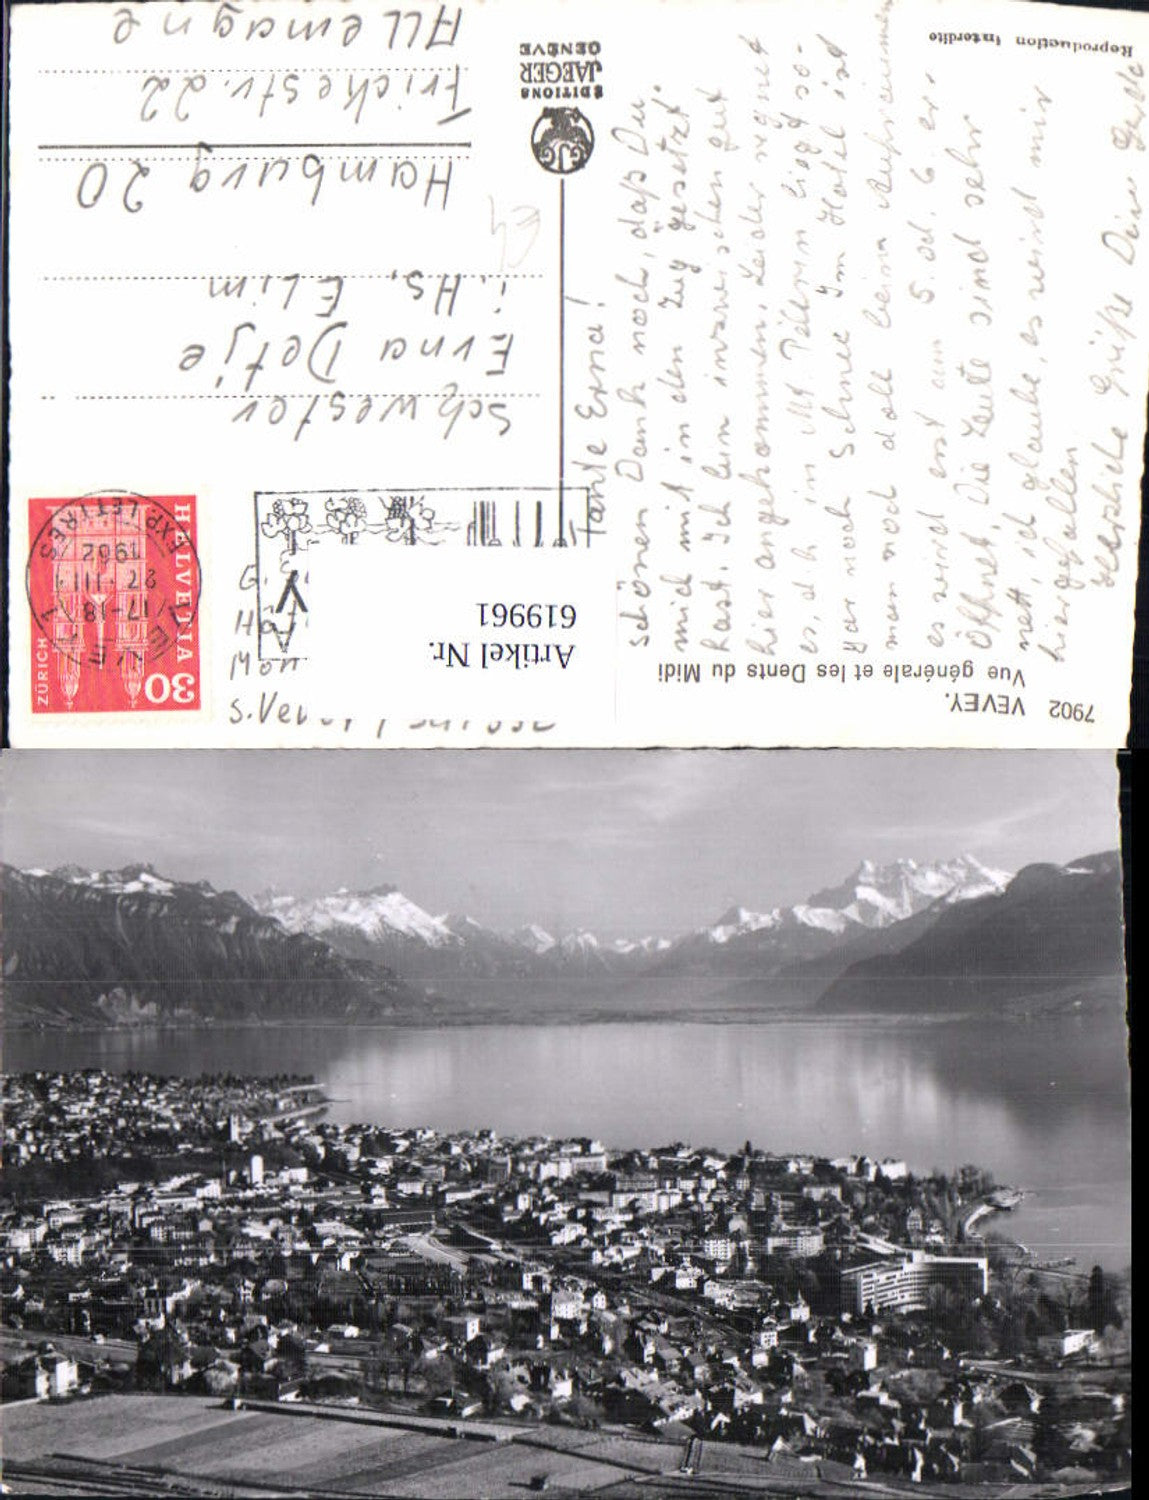 7902 VEVEY.
Vue générale et les Dents du Midi
Artikel Nr.
619961
HELVETIA
30
ZÜRICH
VEVEY 1
17-18
27.III
1962
EXP. LETTRES
G.
Mon
S. Vevey
Schwester
Erna Detje
i. Hs. Elim
Hamburg 20
Frickestr. 22
Allemagne
EDITIONS
JAEGER
GENÈVE
Reproduction interdite
Tante Erna!
Schönen Dank noch, daß Du
mich mit in den Zug gesetzt
hast. Ich bin inzwischen gut
hier angekommen. Leider regnet
es, d.h. in Mt. Pélerin liegt so-
gar noch Schnee. Im Hotel ist
man noch doll beim Aufräumen
es wird erst am 5. od. 6. er-
öffnet. Die Leute sind sehr
nett, ich glaube, es wird mir
hier gefallen.
Herzliche Grüße Deine